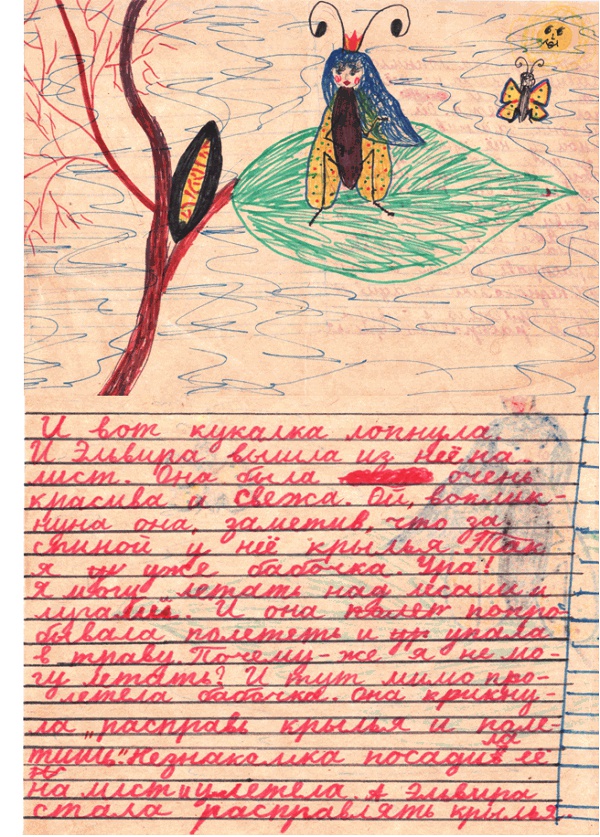 И вот кукалка лопнула
И Эльвира вышла из неё на
лист. Она была очень
красива и свежа. Ой, воплик-
нула она, заметив, что за
спиной у неё крылья. Так
я уже бабочка. Ура!
Я могу летать над лесами и
лугами. И она полет попро
бывала полететь и упала
в траву. Почему-же я не мо-
гу летать? И тут мимо про-
летела бабочка. Она крикну-
ла „расправь крылья и поле-
тишь". Незнакомка посадила её
на лист и улетела. А Эльвира
стала расправлять крылья.